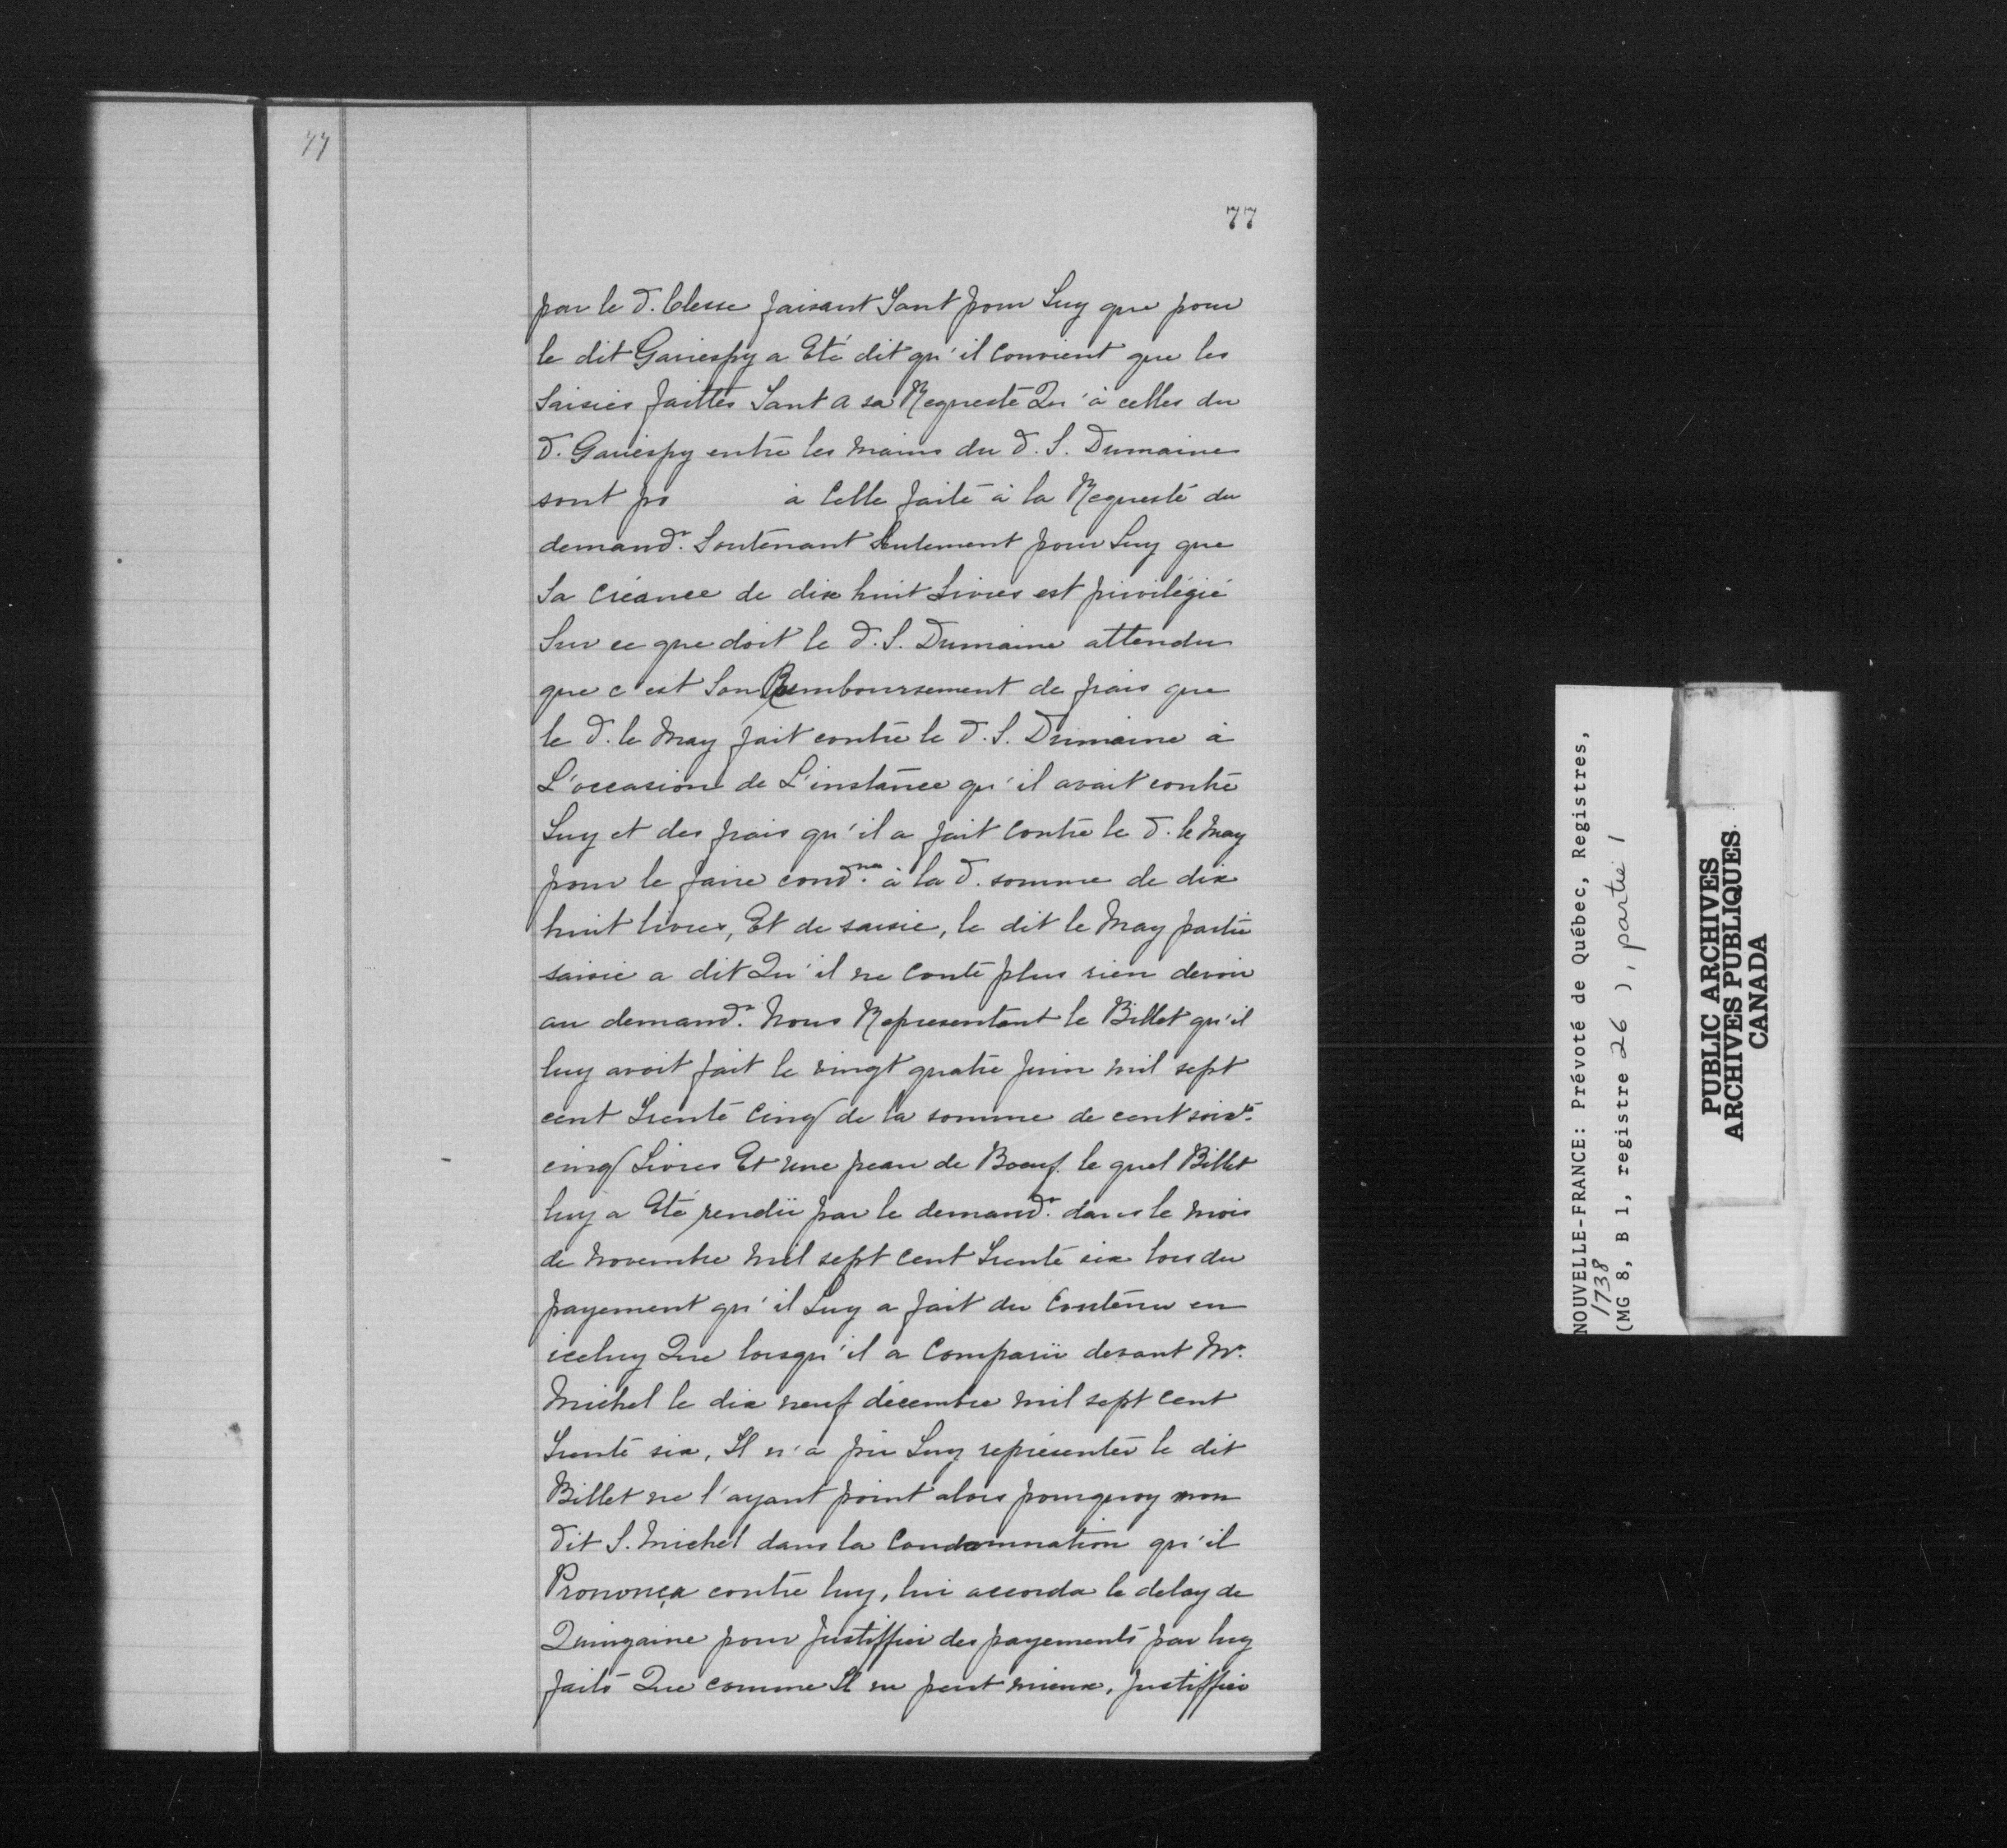 77
77
par le d. Clesse faisant Tant pour Luy que pour
le dit Gariespy a Eté dit qu'il Convient que les
Saisies faittes Tant a sa Requeste Qu'à celles du
d. Gariespy entre les mains du d. S. Dumaine
sont po à Celle faite à la Requeste du
demandr. Soutenant Seulement pour Luy que
Sa Créance de dix huit Livres est privilégié
Sur ce que doit le d. S. Dumaine attendu
que c'est Son Remboursement de frais que
le d. le May fait contre le d. S. Dumaine à
L'occasion de L'instance qu'il avait contre
Luy et des frais qu'il a fait Contre le d. le May
pour le faire condner à la d. somme de dix
huit livres, Et de saisie, le dit le May partie
saisie a dit Qu'il ne Conte plus rien devoir
au demandr. Nous Representant le Billet qu'il
luy avoit fait le vingt quatre Juin mil sept
cent Trente Cinq de la somme de cent soixte
cinq Livres Et une peau de Boeuf le quel Billet
luy a Eté rendü par le demandr. dans le mois
de Novembre Mil sept Cent Trente six lors du
payement qu'il Luy a fait du Contenu en
iceluy Que lorsqu'il a Comparü devant Mr.
Michel le dix neuf décembre mil sept Cent
Trente six, Il n'a pü Luy représenter le dit
Billet ne l'ayant point alors pourquoy mon
dit S. Michel dans la Condamnation qu'il
Prononça contre luy, lui accorda le delay de
Quinzaine pour Justiffier des payements par luy
faits Que comme Il ne peut mieux, Justiffier
NOUVELLE-FRANCE: Prévoté de Québec, Registres,
1738
(MG 8, B 1, registre 26 ), partie 1
PUBLIC ARCHIVES
ARCHIVES PUBLIQUES
CANADA